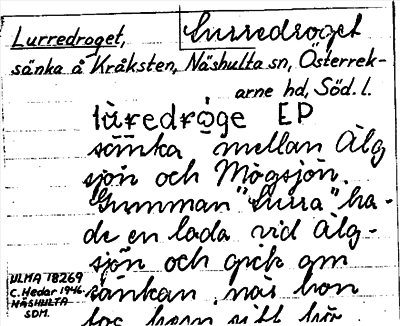 Lurredroget
Lurredroget,
sänka å Kråksten, Näshulta sn, Österrek-
arne hd, Söd. l.
lùredrǫ̀ge EP
sänka mellan Älg
sjön och Mögsjön.
Gumman "Lurra" ha-
de en lada vid Älg-
sjön och gick om
sänkan, när hon
tog hem sitt hö
ULMA 18269
C. Hedar 1946.
NÄSHULTA
SDM.